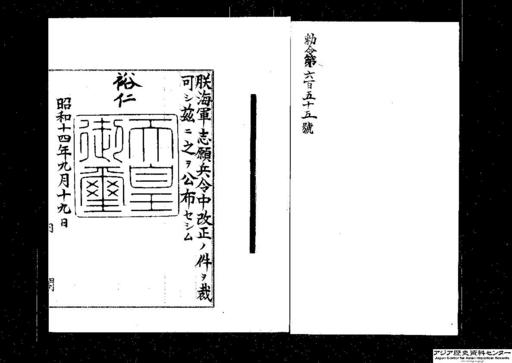 勅令第六百五十五號
朕海軍志願兵令中改正ノ件ヲ裁
可シ茲ニ之ヲ公布セシム
裕仁
天皇御璽
昭和十四年九月十九日
アジア歴史資料センター
Japan Center for Asian Historical Records